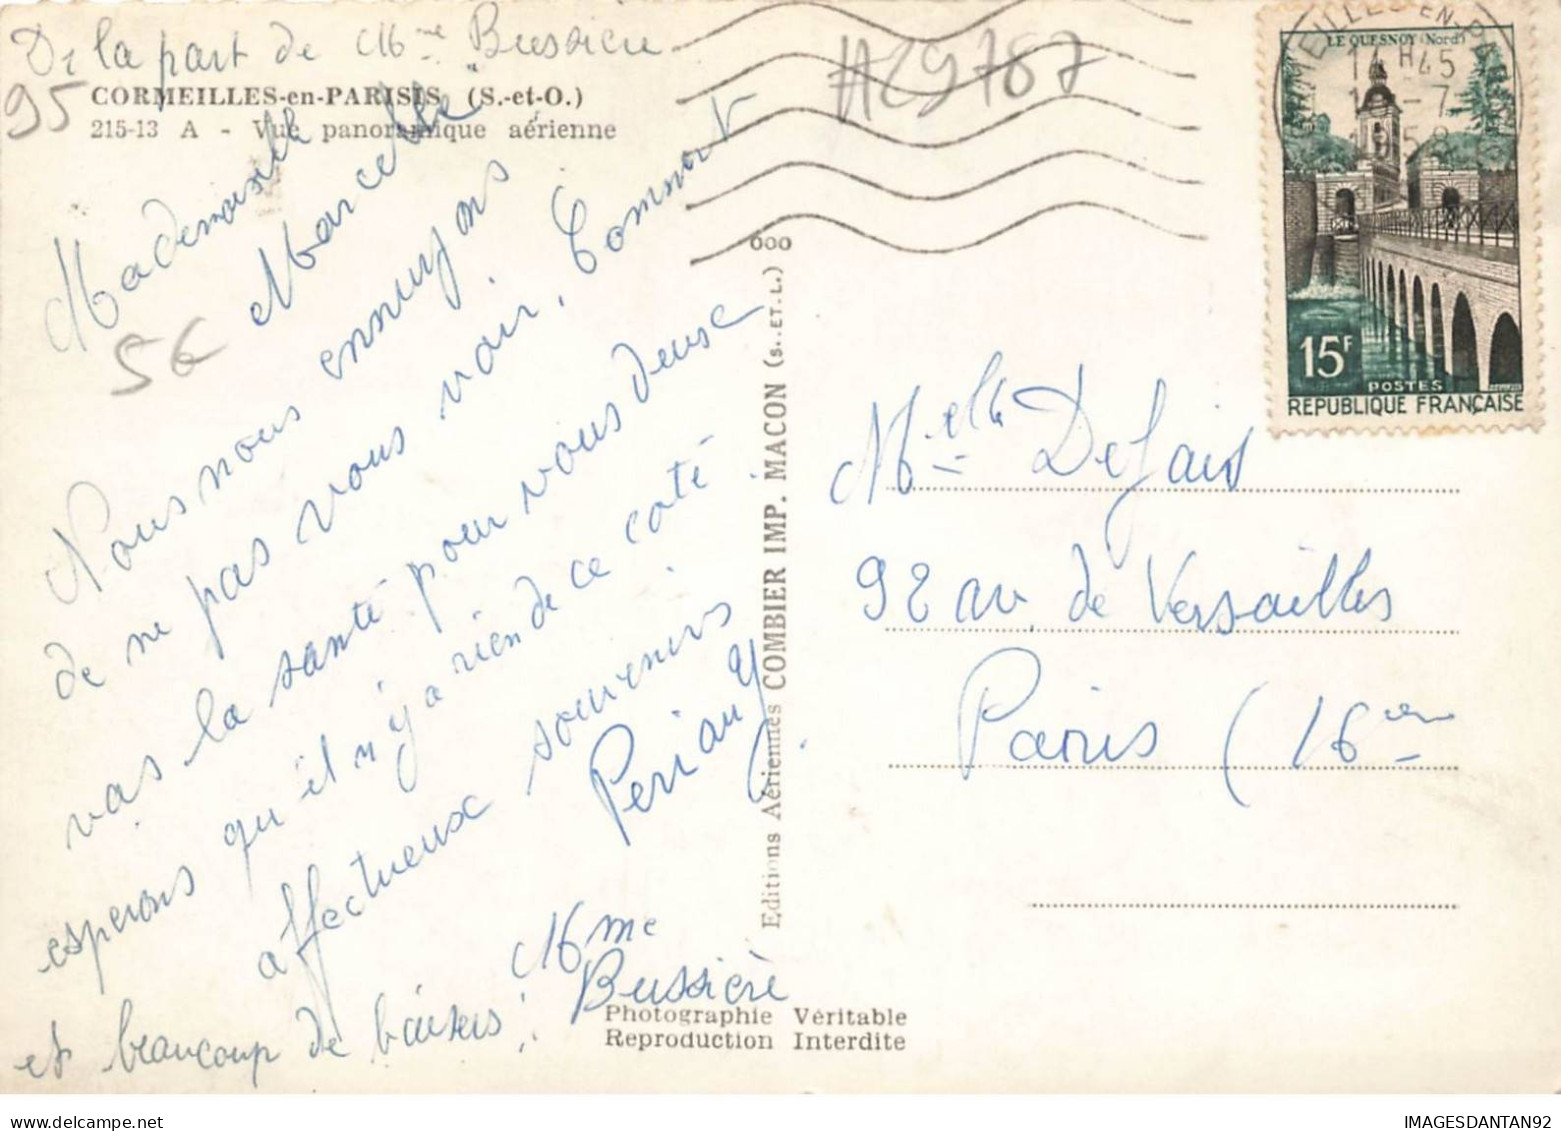 De la part de Mme Bussière
95
CORMEILLES-en-PARISIS (S.-et-O.)
215-13 A - Vue panoramique aérienne
Mademoiselle
Marcelle
5€
Nous nous ennuyons
de ne pas vous voir, Comment
vas la santé pour vous deux
esperons qu'il n'y a rien de ce coté
affectueux souvenirs
Perianu
Mme
Bussière
et beaucoup de baisers
A29787
000
Editions Aériennes COMBIER IMP. MACON (S.-ET-L.)
Photographie Véritable
Reproduction Interdite
CORMEILLES-EN-PARISIS
14H45
-7
1958
LE QUESNOY (Nord)
15F
POSTES
REPUBLIQUE FRANÇAISE
Melle Dejais
92 av. de Versailles
Paris (16em
IMAGESDANTAN92